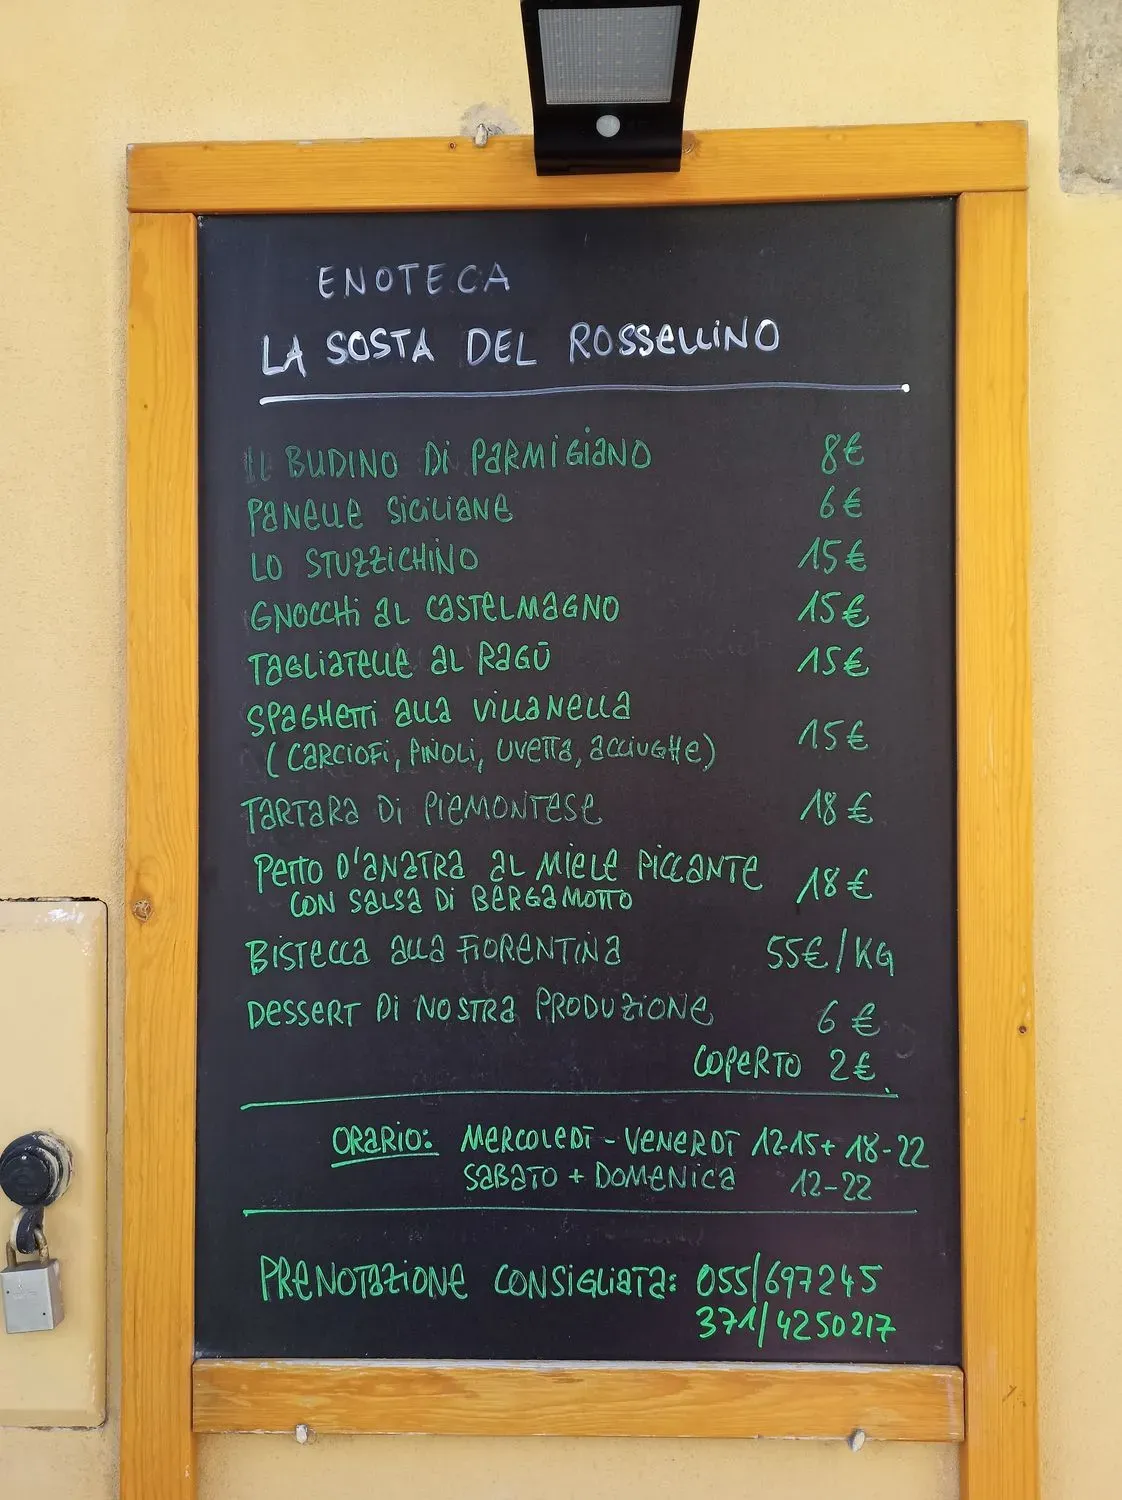 ENOTECA
LA SOSTA DEL ROSSELLINO
IL BUDINO DI PARMIGIANO 8€
PANELLE SICILIANE 6€
LO STUZZICHINO 15€
GNOCCHI AL CASTELMAGNO 15€
TAGLIATELLE AL RAGÙ 15€
SPAGHETTI ALLA VILLANELLA
(CARCIOFI, PINOLI, UVETTA, ACCIUGHE) 15€
TARTARA DI PIEMONTESE 18€
PETTO D'ANATRA AL MIELE PICCANTE
CON SALSA DI BERGAMOTTO 18€
BISTECCA ALLA FIORENTINA 55€/KG
DESSERT DI NOSTRA PRODUZIONE 6€
COPERTO 2€.
ORARIO: MERCOLEDÌ - VENERDÌ 12-15 + 18-22
SABATO + DOMENICA 12-22
PRENOTAZIONE CONSIGLIATA: 055/697245
371/4250217